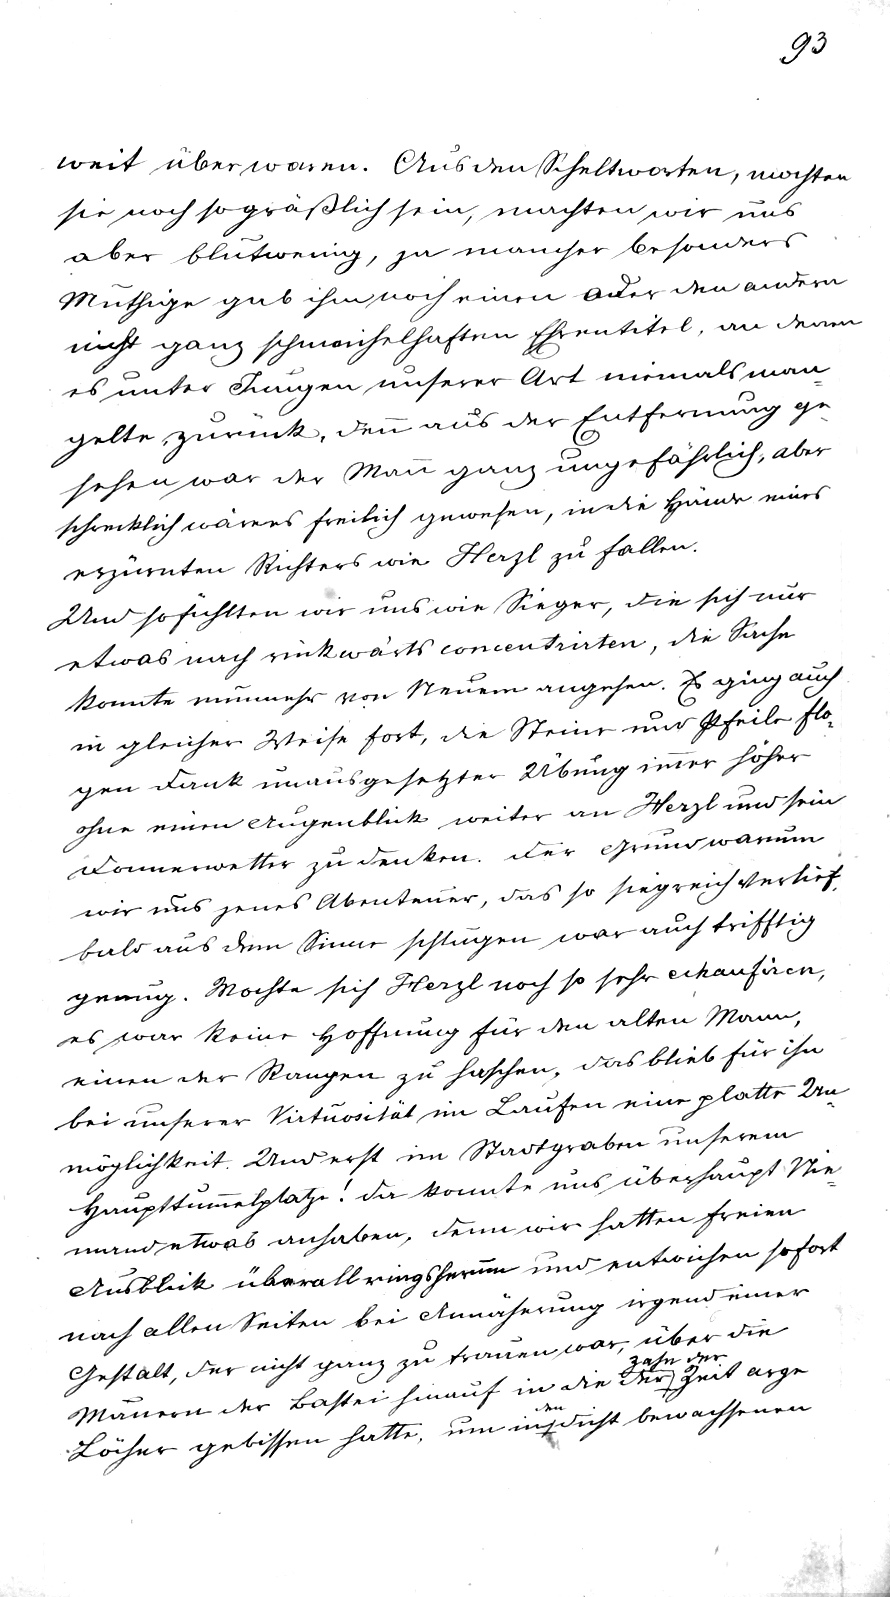 93
weit über waren. Aus den Scheltworten, mochten
sie noch so gräßlich sein, machten wir uns
aber blutwenig, ja mancher besonders
Muthige gab ihm noch einen oder den andern
nicht ganz schmeichelhaften Ehrentitel, an denen
es unter Jungen unserer Art niemals man-
gelte, zurück, den̄ aus der Entfernung ge-
sehen war der Man̄ ganz ungefährlich, aber
schrecklich wäre es freilich gewesen, in die Hände eines
erzürnten Richters wie Herzl zu fallen.
Und so fühlten wir uns wie Sieger, die sich nur
etwas nach rückwärts concentrirten, die Sache
konnte nunmehr von Neuem angehen. Es ging auch
in gleicher Weise fort, die Steine und Pfeile flo-
gen dank unausgesetzter Übung im̄er höher
ohne einen Augenblick weiter an Herzl und sein
Donnerwetter zu denken. Der Grund warum
wir uns jenes Abenteuer, das so siegreich verlief,
bald aus dem Sinne schlugen war auch trifftig
genug. Mochte sich Herzl noch so sehr echaufiren,
es war keine Hoffnung für den alten Mann,
einen der Rangen zu haschen, das blieb für ihn
bei unserer Virtuosität im Laufen eine platte Un-
möglichkeit. Und erst im Stadtgraben unserem
Haupttum̄elplatze! Da konnte uns überhaupt Nie-
mand etwas anhaben, denn wir hatten freien
Ausblick überall ringsherum und entwichen sofort
nach allen Seiten bei Annäherung irgend einer
Gestalt, der nicht ganz zu trauen war, über die
Mauern der Bastei hinauf in die der Zahn der Zeit arge
Löcher gebissen hatte, um in den dicht bewachsenen